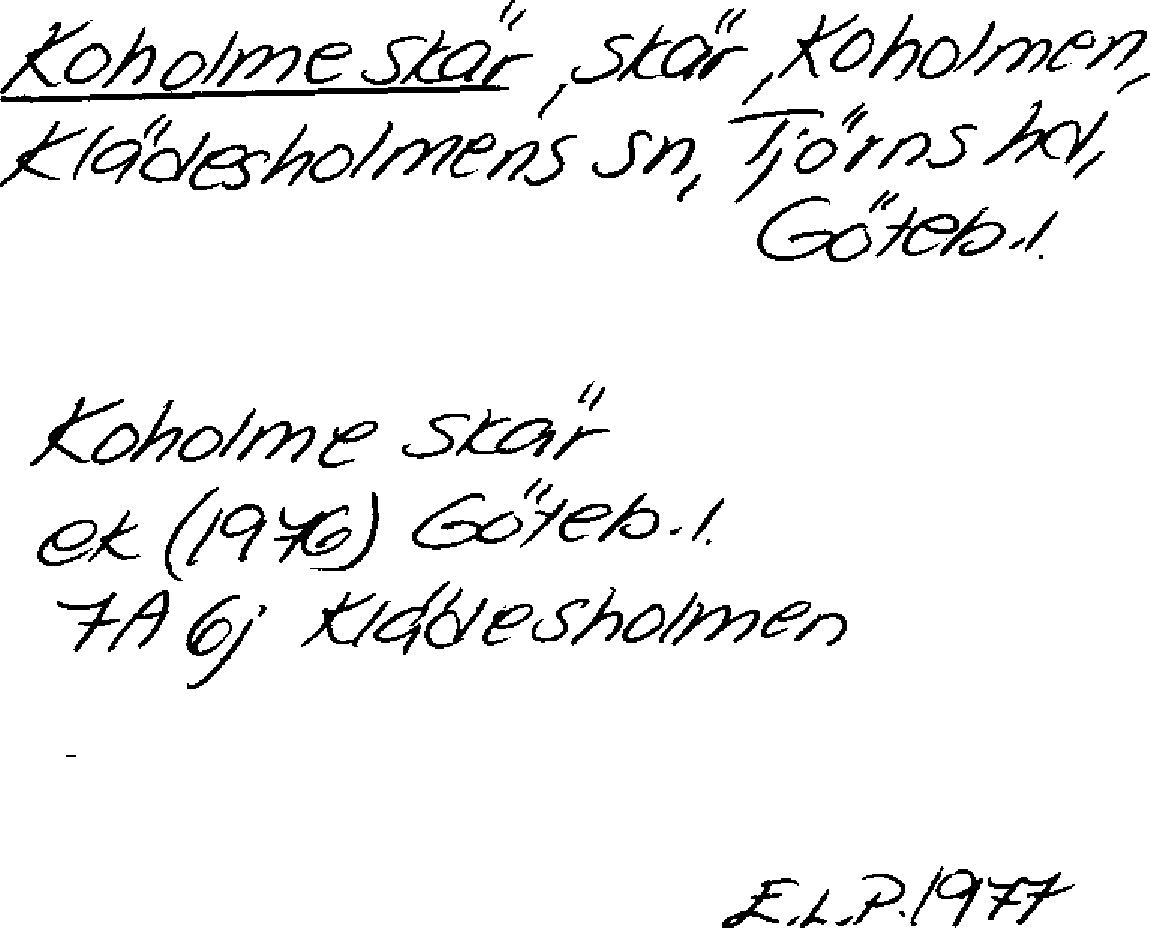 Koholme skär, skär, Koholmen,
Klädesholmens sn, Tjörns hd,
Göteb.l.
Koholme skär
ek (1976) Göteb.l.
7A 6j Klädesholmen
E.L.P. 1977